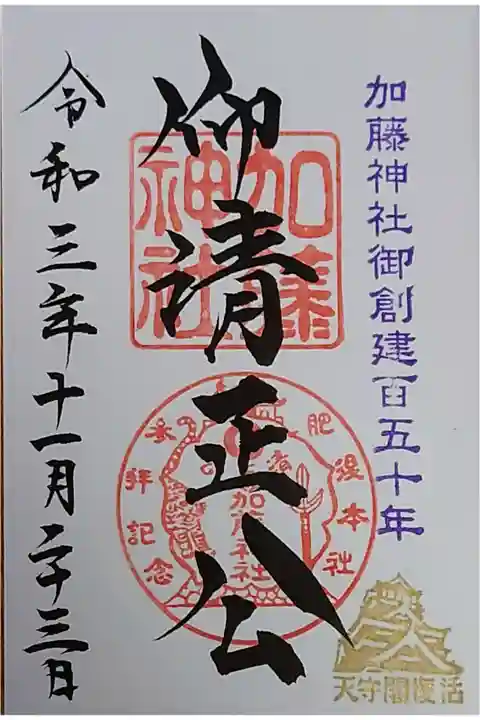 加藤神社御創建百五十年
仰清正公
加藤神社
肥後本社
参拝記念
加藤神社
令和三年十一月二十三日
天守閣復活